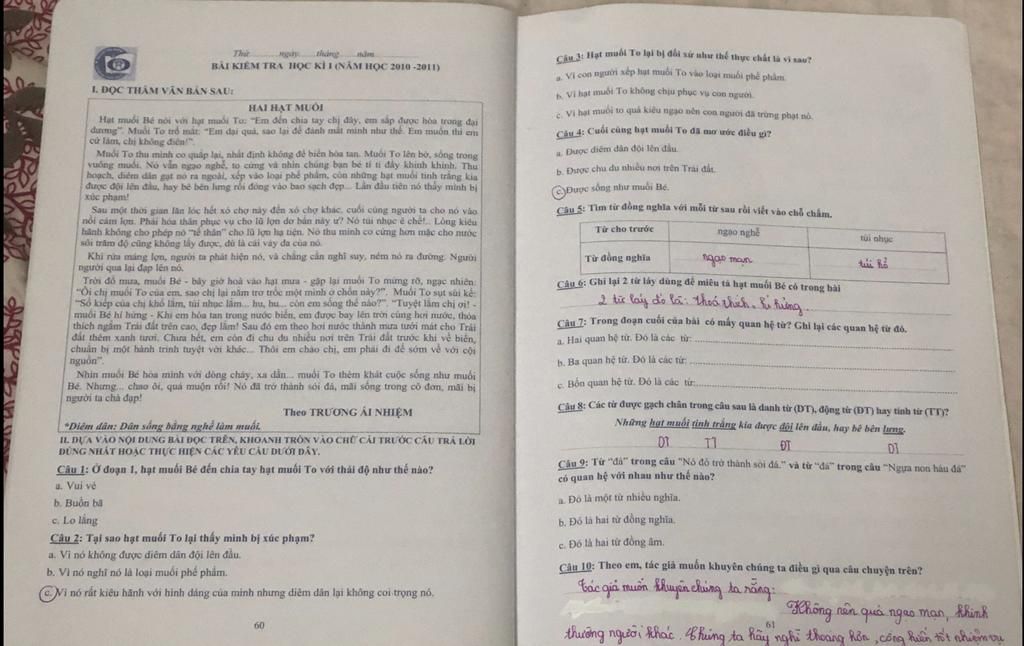 Thứ ngày tháng năm
BÀI KIỂM TRA HỌC KÌ I (NĂM HỌC 2010 -2011)
I. ĐỌC THẦM VĂN BẢN SAU:
HAI HẠT MUỐI
Hạt muối Bé nói với hạt muối To: "Em đến chia tay chị đây, em sắp được hòa trong đại
dương". Muối To trố mắt: "Em dại quá, sao lại để đánh mất mình như thế. Em muốn thì em
cứ làm, chị không điên!".
Muối To thu mình co quắp lại, nhất định không để biển hòa tan. Muối To lên bờ, sống trong
vuông muối. Nó vẫn ngạo nghễ, to cứng và nhìn chúng bạn bé tí ti đầy khinh khỉnh. Thu
hoạch, diêm dân gạt nó ra ngoài, xếp vào loại phế phẩm, còn những hạt muối tinh trắng kia
được đội lên đầu, hay bê bên lưng rồi đóng vào bao sạch đẹp... Lần đầu tiên nó thấy mình bị
xúc phạm!
Sau một thời gian lăn lóc hết xó chợ này đến xó chợ khác, cuối cùng người ta cho nó vào
nồi cám lợn. Phải hóa thân phục vụ cho lũ lợn dơ bẩn này ư? Nó tủi nhục ê chề!.. Lòng kiêu
hãnh không cho phép nó "tế thân" cho lũ lợn hạ tiện. Nó thu mình co cứng hơn mặc cho nước
sôi trăm độ cũng không lấy được, dù là cái vảy da của nó.
Khi rửa máng lợn, người ta phát hiện nó, và chẳng cần nghĩ suy, ném nó ra đường. Người
người qua lại đạp lên nó.
Trời đổ mưa, muối Bé - bây giờ hoà vào hạt mưa - gặp lại muối To mừng rỡ, ngạc nhiên:
"Ôi chị muối To của em, sao chị lại nằm trơ trốc một mình ở chốn này?". Muối To sụt sùi kể:
"Số kiếp của chị khổ lắm, tủi nhục lắm... hu, hu... còn em sống thế nào?". "Tuyệt lắm chị ơi! -
muối Bé hí hửng - Khi em hòa tan trong nước biển, em được bay lên trời cùng hơi nước, thỏa
thích ngắm Trái đất trên cao, đẹp lắm! Sau đó em theo hơi nước thành mưa tưới mát cho Trái
đất thêm xanh tươi. Chưa hết, em còn đi chu du nhiều nơi trên Trái đất trước khi về biển,
chuẩn bị một hành trình tuyệt vời khác... Thôi em chào chị, em phải đi để sớm về với cội
nguồn".
Nhìn muối Bé hòa mình với dòng chảy, xa dần... muối To thèm khát cuộc sống như muối
Bé. Nhưng... chao ôi, quá muộn rồi! Nó đã trở thành sỏi đá, mãi sống trong cô đơn, mãi bị
người ta chà đạp!
Theo TRƯƠNG ÁI NHIỆM
*Diêm dân: Dân sống bằng nghề làm muối.
II. DỰA VÀO NỘI DUNG BÀI ĐỌC TRÊN, KHOANH TRÒN VÀO CHỮ CÁI TRƯỚC CÂU TRẢ LỜI
ĐÚNG NHẤT HOẶC THỰC HIỆN CÁC YÊU CẦU DƯỚI ĐÂY.
Câu 1: Ở đoạn 1, hạt muối Bé đến chia tay hạt muối To với thái độ như thế nào?
a. Vui vẻ
b. Buồn bã
c. Lo lắng
Câu 2: Tại sao hạt muối To lại thấy mình bị xúc phạm?
a. Vì nó không được diêm dân đội lên đầu.
b. Vì nó nghĩ nó là loại muối phế phẩm.
c. Vì nó rất kiêu hãnh với hình dáng của mình nhưng diêm dân lại không coi trọng nó.
60
Câu 3: Hạt muối To lại bị đối xử như thế thực chất là vì sao?
a. Vì con người xếp hạt muối To vào loại muối phế phẩm.
b. Vì hạt muối To không chịu phục vụ con người.
c. Vì hạt muối to quá kiêu ngạo nên con người đã trừng phạt nó.
Câu 4: Cuối cùng hạt muối To đã mơ ước điều gì?
a. Được diêm dân đội lên đầu.
b. Được chu du nhiều nơi trên Trái đất.
c. Được sống như muối Bé.
Câu 5: Tìm từ đồng nghĩa với mỗi từ sau rồi viết vào chỗ chấm.
Từ cho trước ngạo nghễ tủi nhục
Từ đồng nghĩa ngạo mạn tủi hổ
Câu 6: Ghi lại 2 từ láy dùng để miêu tả hạt muối Bé có trong bài
2 từ láy đó là: thoả thích, hí hửng
Câu 7: Trong đoạn cuối của bài có mấy quan hệ từ? Ghi lại các quan hệ từ đó.
a. Hai quan hệ từ. Đó là các từ:
b. Ba quan hệ từ. Đó là các từ:
c. Bốn quan hệ từ. Đó là các từ:
Câu 8: Các từ được gạch chân trong câu sau là danh từ (DT), động từ (ĐT) hay tính từ (TT)?
Những hạt muối tinh trắng kia được đội lên đầu, hay bê bên lưng.
DT TT ĐT DT
Câu 9: Từ "đá" trong câu "Nó đã trở thành sỏi đá." và từ "đá" trong câu "Ngựa non háu đá"
có quan hệ với nhau như thế nào?
a. Đó là một từ nhiều nghĩa.
b. Đó là hai từ đồng nghĩa.
c. Đó là hai từ đồng âm.
Câu 10: Theo em, tác giả muốn khuyên chúng ta điều gì qua câu chuyện trên?
Tác giả muốn khuyên chúng ta rằng:
Không nên quá ngạo mạn, khinh
thường người khác. Chúng ta hãy nghĩ thoáng hơn, cống hiến tốt nhiệm vụ
61